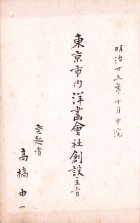 明治廿五年十月中浣
東京市内洋畫會社創設主旨
發起者
高橋由一